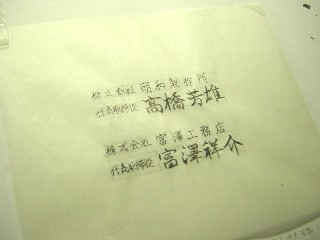 株式会社 明和製作所
代表取締役 高橋芳雄
株式会社 富澤工務店
代表取締役 富澤祥介